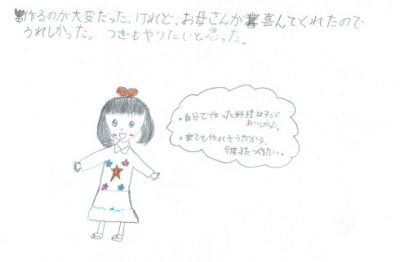 作るのが大変だった、けれど、お母さんが喜んでくれたので
うれしかった。つぎもやりたいと思った。
・自分で作った料理はすごく
おいしかった。
・家でも作れそうだから、
今度またつくりたい。